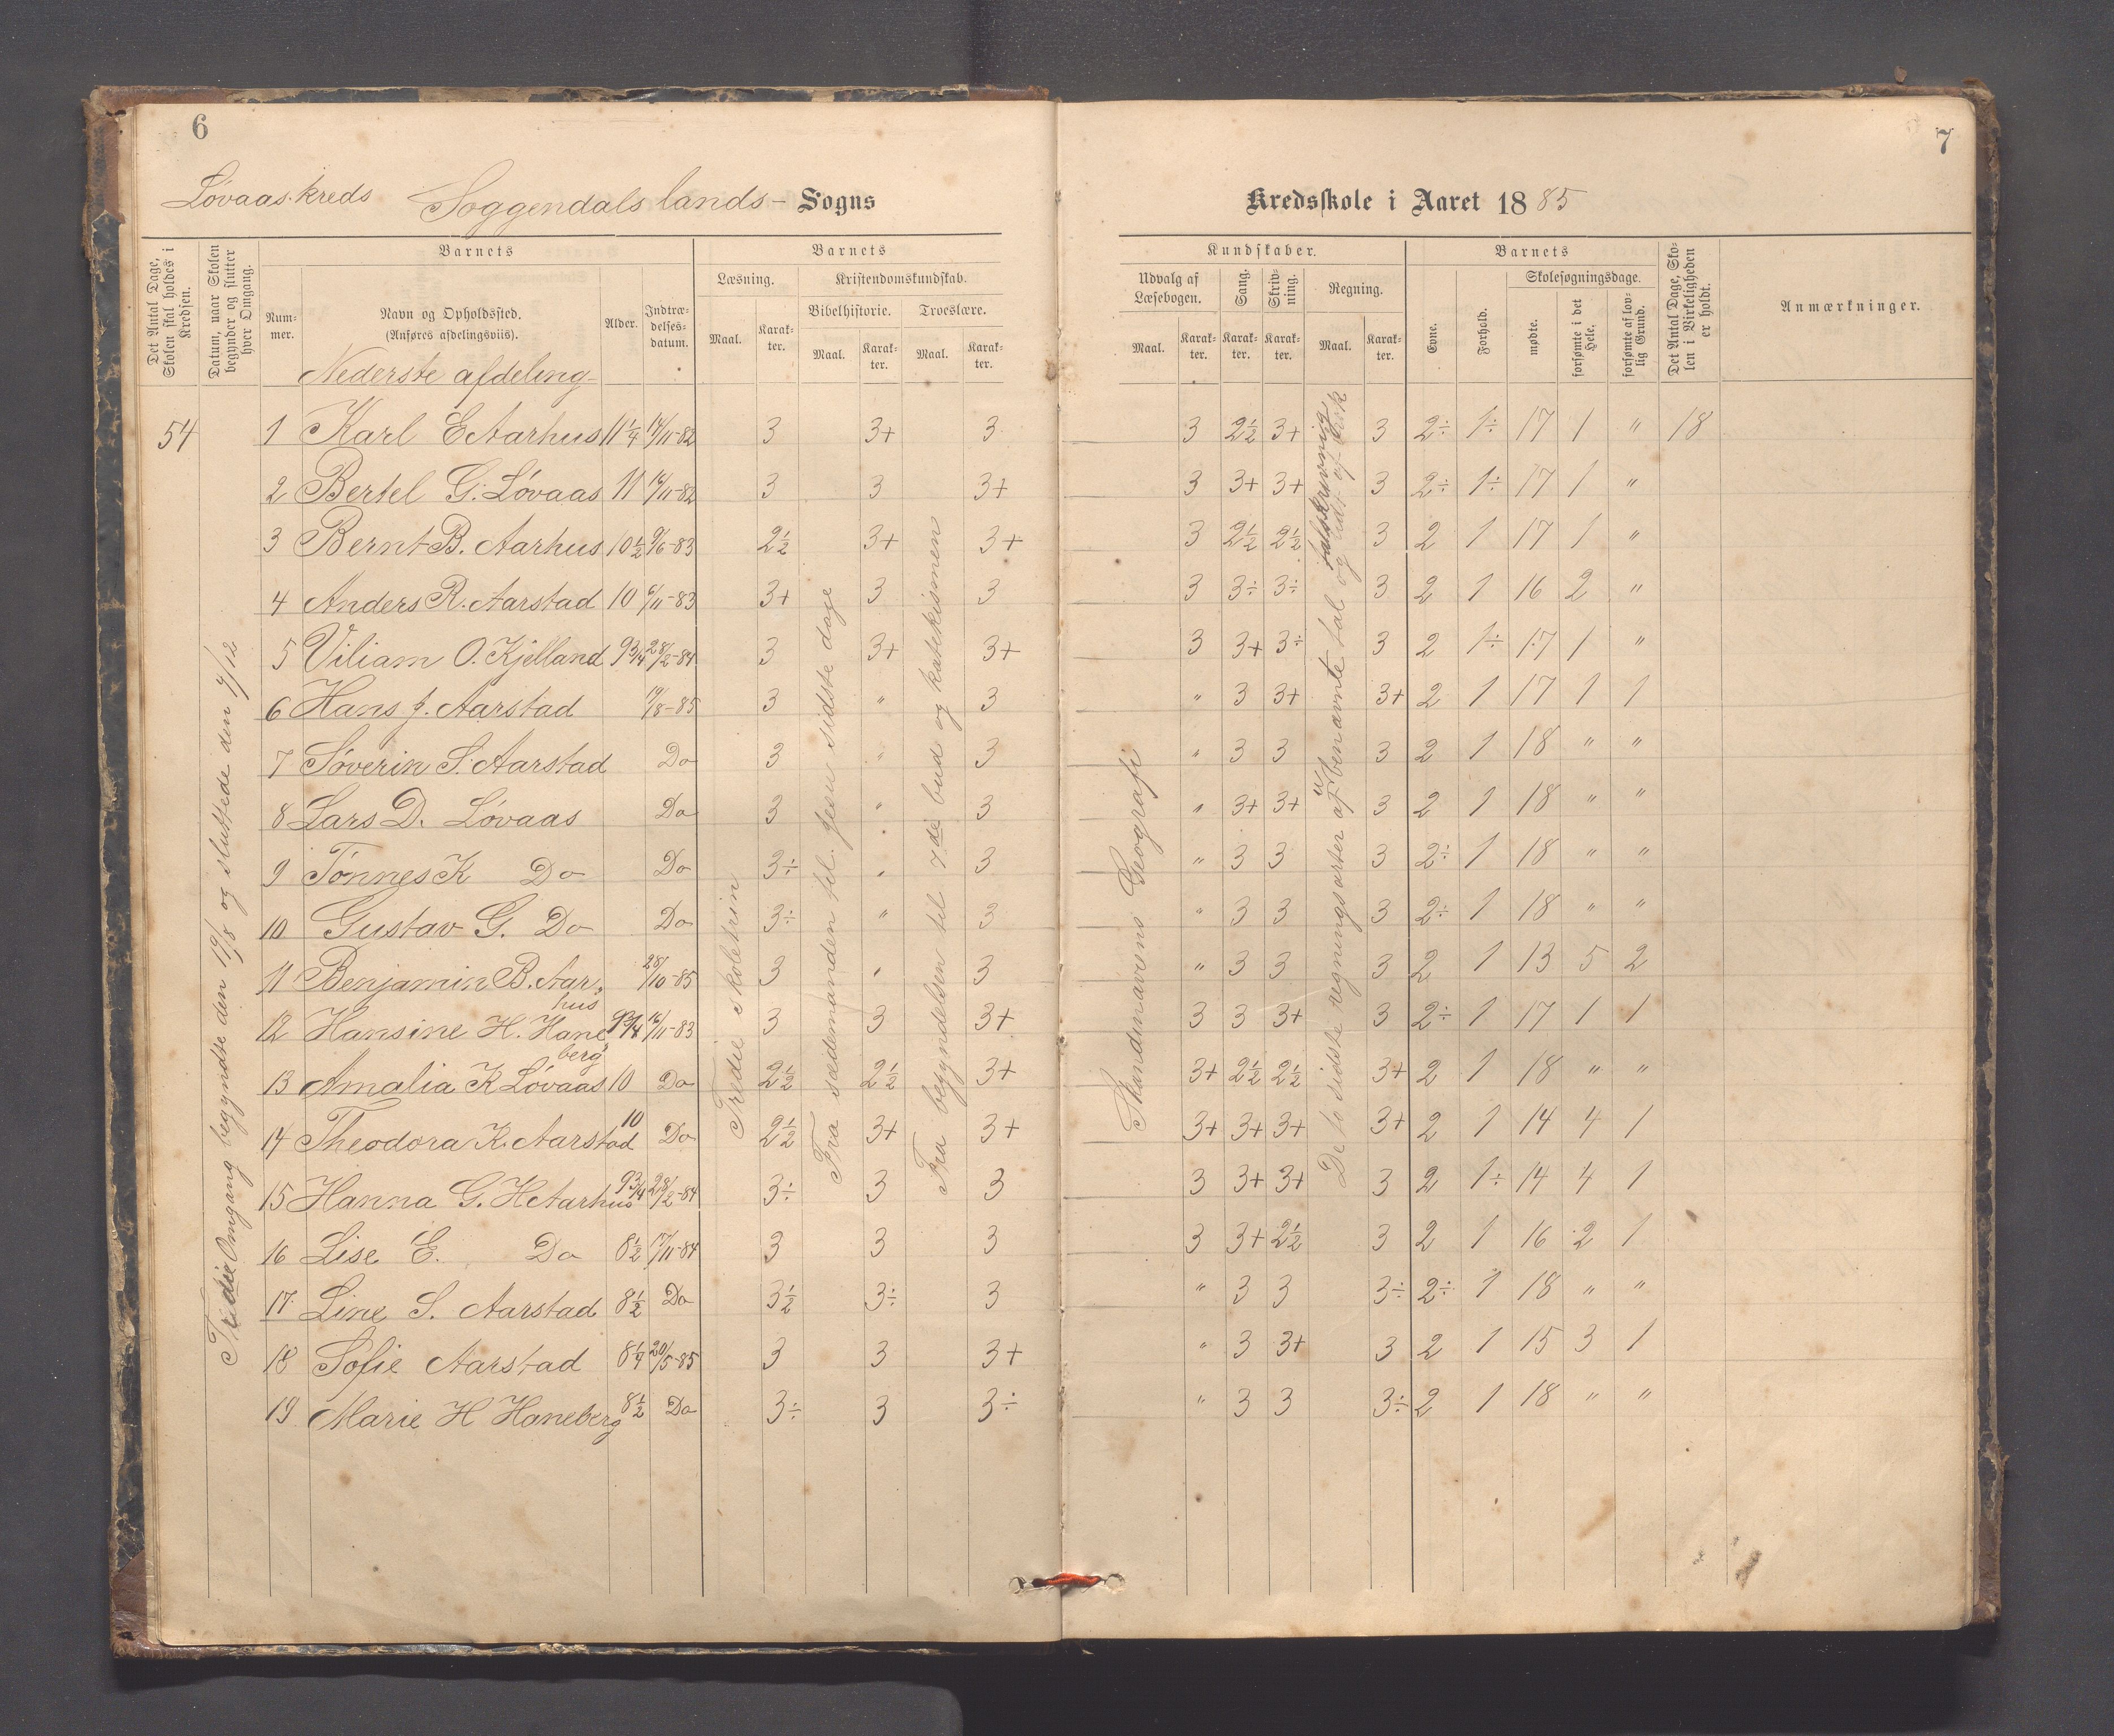 6
7
Løvaaskreds Soggendals lands - Sogns
Kredsskole i Aaret 1885
Det Antal Dage, Skolen skal holdes i Kredsen.
Datum, naar Skolen begynder og slutter hver Omgang.
Barnets
Num-mer.
Navn og Opholdssted.
(Anføres afdelingsviis).
Alder.
Indtræ-delses-datum.
Barnets
Læsning.
Maal.
Karak-ter.
Kristendomskundskab.
Bibelhistorie.
Maal.
Karak-ter.
Troeslære.
Maal.
Karak-ter.
Kundskaber.
Udvalg af Læsebogen.
Maal.
Karak-ter.
Sang.
Karak-ter.
Skriv-ning.
Karak-ter.
Regning.
Maal.
Karak-ter.
Barnets
Evne.
Forhold.
Skolesøgningsdage.
mødte.
forsømte i det Hele.
forsømte af lov-lig Grund.
Det Antal Dage, Sko-len i Virkeligheden er holdt.
Anmærkninger.
Nederste afdeling
54
Tredie Omgang begyndte den 19/8 og sluttede den 4/12
Tredie skoletrin
Fra sædemanden til Jesu sidste dage
Fra begyndelsen til 7de bud og katekismen
Skandinaviens Geografi
De to sidste regningsarter af ubenævnte tal og
talskrivning
1 Karl E Aarhus 11 1/4 14/11-82 3 3+ 3 3 2 1/2 3+ 3 2÷ 1÷ 17 1 " 18
2 Bertel G. Løvaas 11 14/11-82 3 3 3+ 3 3+ 3+ 3 2÷ 1÷ 17 1 "
3 Bernt B. Aarhus 10 1/2 9/6-83 2 1/2 3+ 3+ 3 2 1/2 2 1/2 3 2 1 17 1 "
4 Anders R. Aarstad 10 6/11-83 3+ 3 3 3 3÷ 3÷ 3 2 1 16 2 "
5 Viliam O. Kjelland 9 3/4 28/2-84 3 3+ 3+ 3 3+ 3÷ 3 2 1÷ 17 1 "
6 Hans J. Aarstad 19/8-85 3 " 3 " 3 3+ 3+ 2 1 17 1 1
7 Søverin S. Aarstad Do 3 " 3 " 3 3 3 2 1 18 " "
8 Lars D. Løvaas Do 3 " 3 " 3+ 3+ 3 2 1 18 " "
9 Tønnes K Do Do 3÷ " 3 " 3 3 3 2÷ 1 18 " "
10 Gustav G. Do Do 3÷ " 3 " 3 3 3 2÷ 1 18 " "
11 Benjamin B. Aar-hus 28/10-85 3 " 3 " 3 3 3 2 1 13 5 2
12 Hansine H. Haneberg 9 3/4 16/11-83 3 3 3+ 3 3 3+ 3 2÷ 1 17 1 1
13 Amalia K Løvaas 10 Do 2 1/2 2 1/2 3+ 3+ 2 1/2 2 1/2 3+ 2 1 18 " "
14 Theodora K. Aarstad 10 Do 2 1/2 3+ 3+ 3+ 3+ 3+ 3+ 2 1 14 4 1
15 Hanna G. H Aarhus 9 3/4 28/2-84 3÷ 3 3 3 3+ 3+ 3 2 1÷ 14 4 1
16 Lise E. Do 8 1/2 17/11-84 3 3 3 3 3+ 2 1/2 3 2 1 16 2 1
17 Line S. Aarstad 8 1/2 Do 3 1/2 3÷ 3 " 3 3 3÷ 2÷ 1 18 " "
18 Sofie Aarstad 8 1/4 20/5-85 3 3 3+ " 3 3+ 3 2 1 15 3 1
19 Marie H Haneberg 8 1/2 Do 3÷ 3 3÷ " 3 3 3÷ 2 1 18 " "